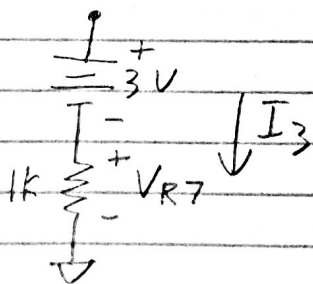 +
3V
-
I3
+
1K
VR7
-